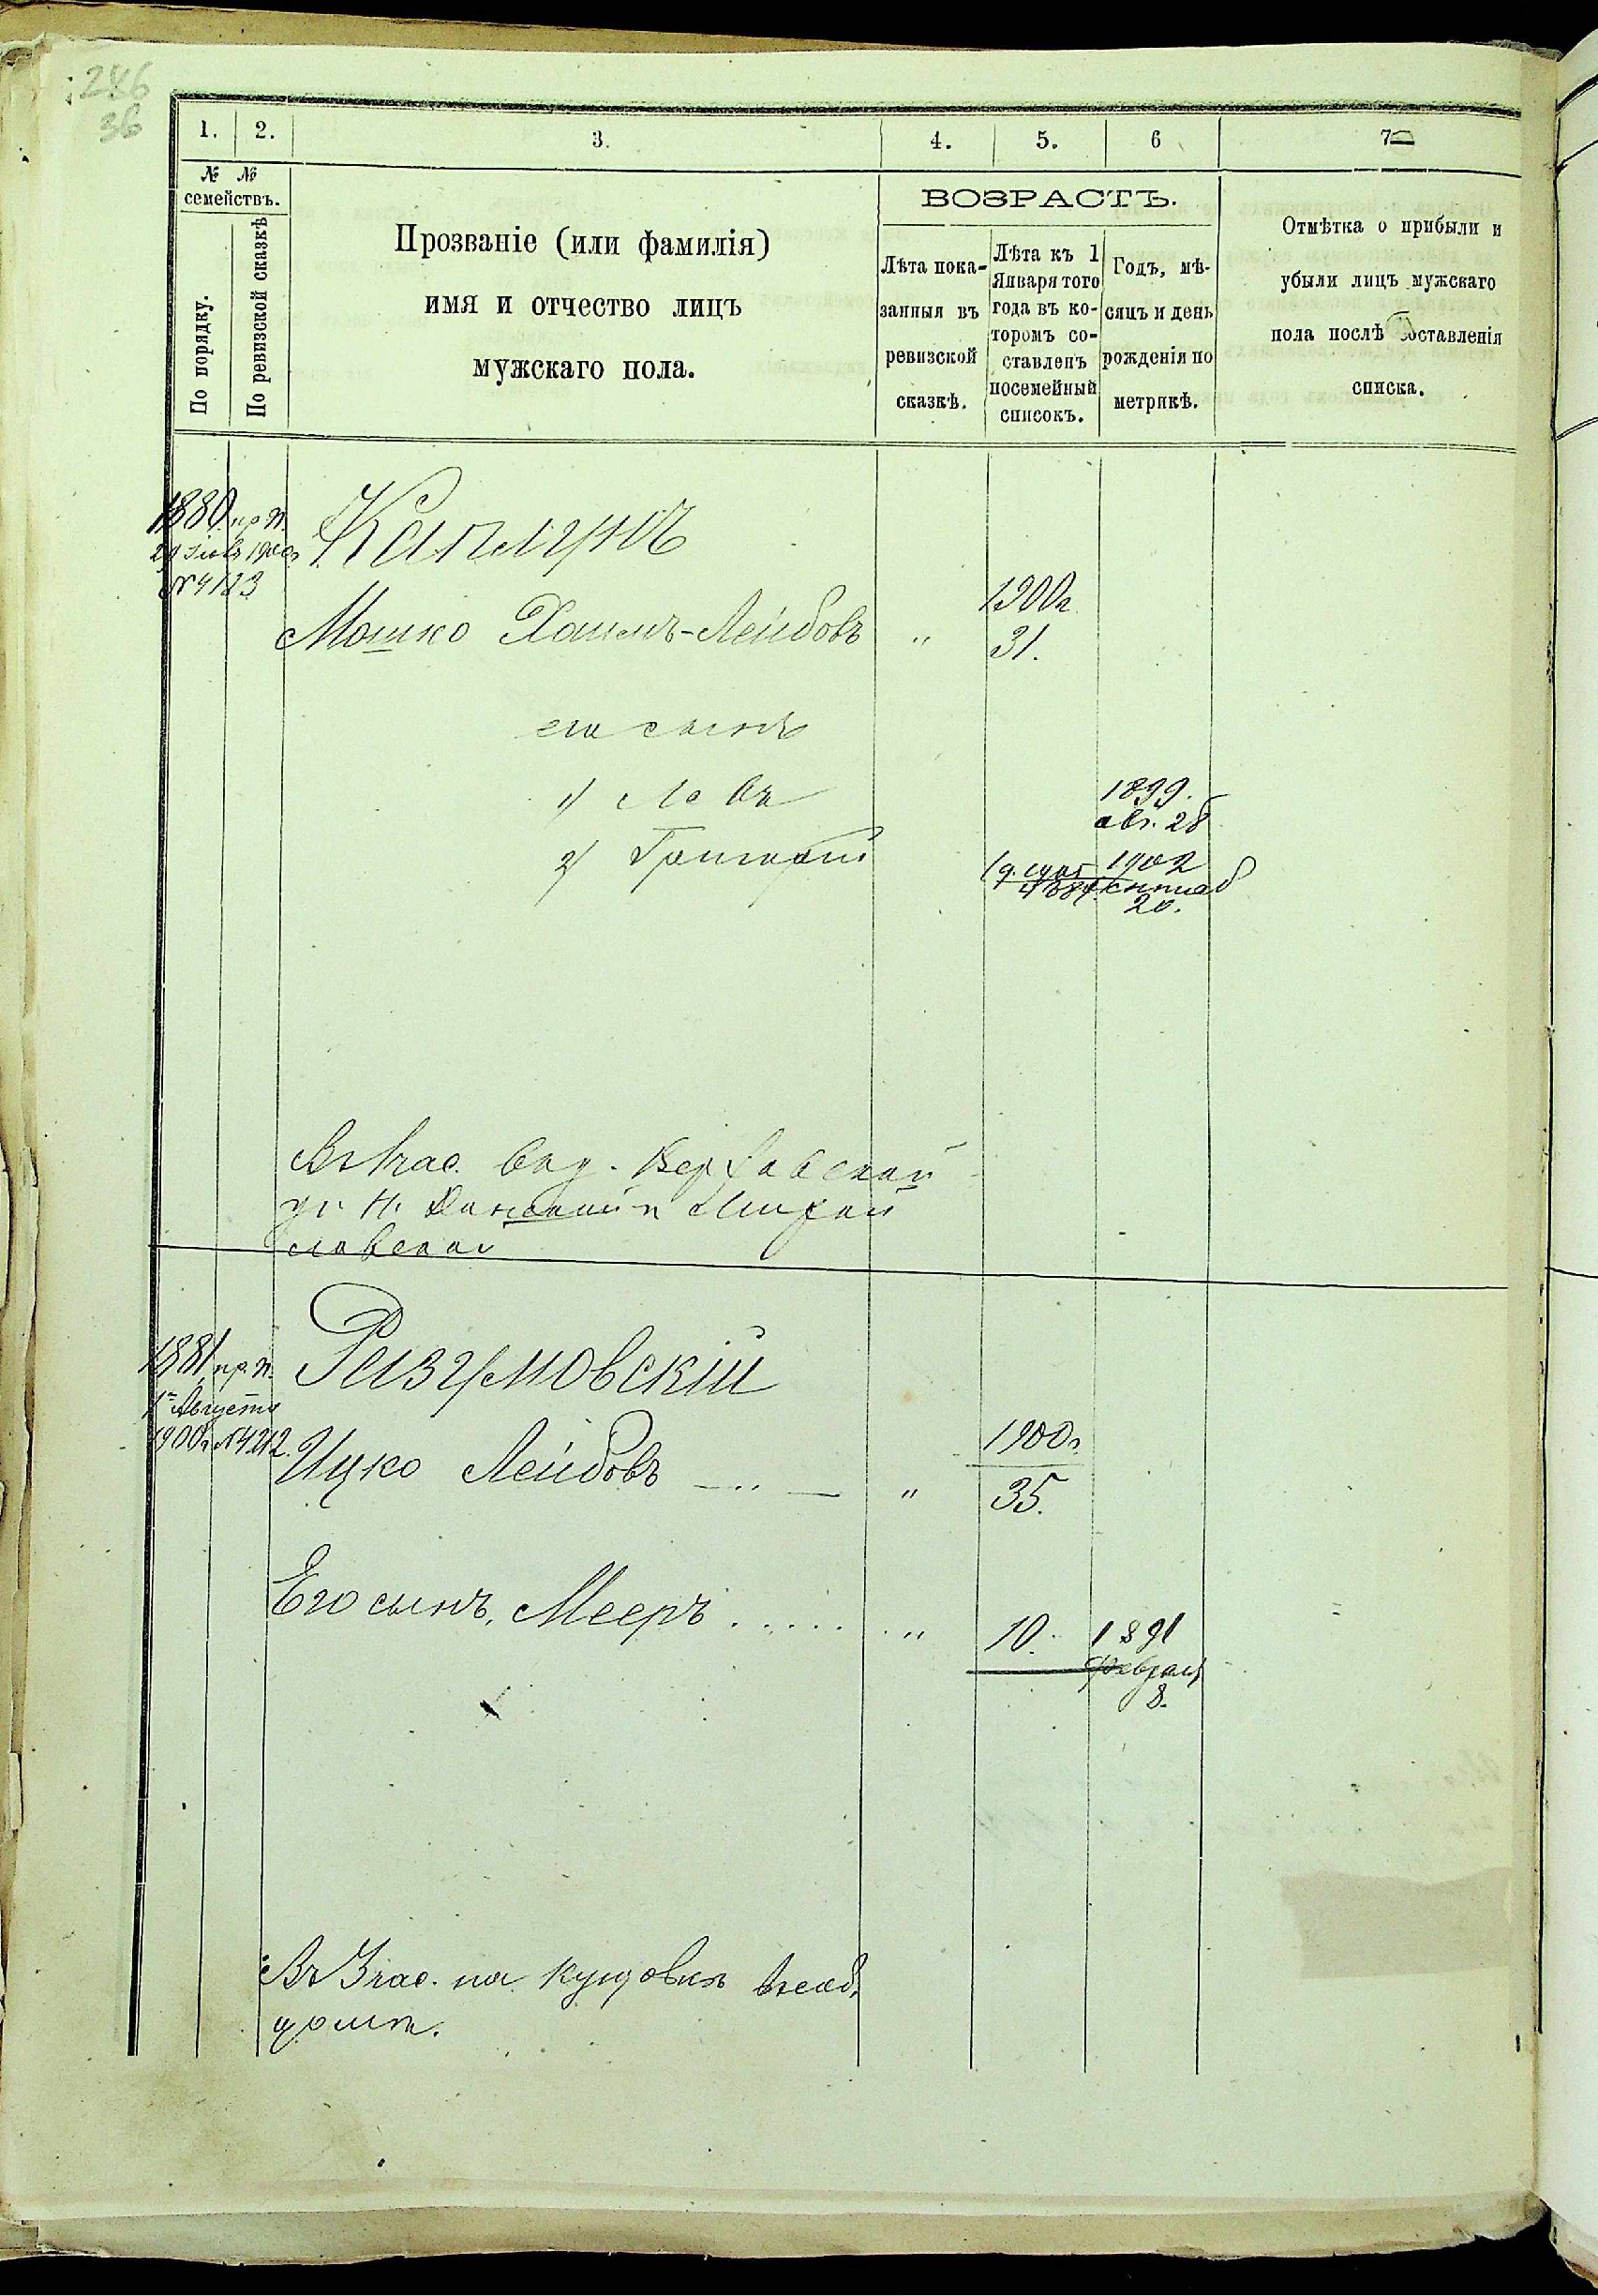 286
36
1. 2. 3. 4. 5. 6 7
№ №
семействъ.
По порядку.
По ревизской сказкѣ
Прозваніе (или фамилія)
имя и отчество лицъ
мужскаго пола.
ВОЗРАСТЪ.
Лѣта пока-
занныя въ
ревизской
сказкѣ.
Лѣта къ 1
Января того
года въ ко-
торомъ со-
ставленъ
посемейный
списокъ.
Годъ, мѣ-
сяцъ и день
рожденія по
метрикѣ.
Отмѣтка о прибыли и
убыли лицъ мужскаго
пола послѣ составленія
списка.
1880 пр. п.
29 1900г
№4123
Капланъ
1900г
Мошко Хаимъ-Лейбовъ " 31.
его сынъ
1) Левъ 1899.
авг. 28
2) Григорій 1902
20.
Въ час.
1881 пр. п.
1го Августа
1900г №4212.
Разумовскій
1900г
Ицко Лейбовъ — " — " 35.
Его сынъ, Мееръ . . . . . . " 10. 1891
Февраля
8.
Въ 3 час. на
домъ.